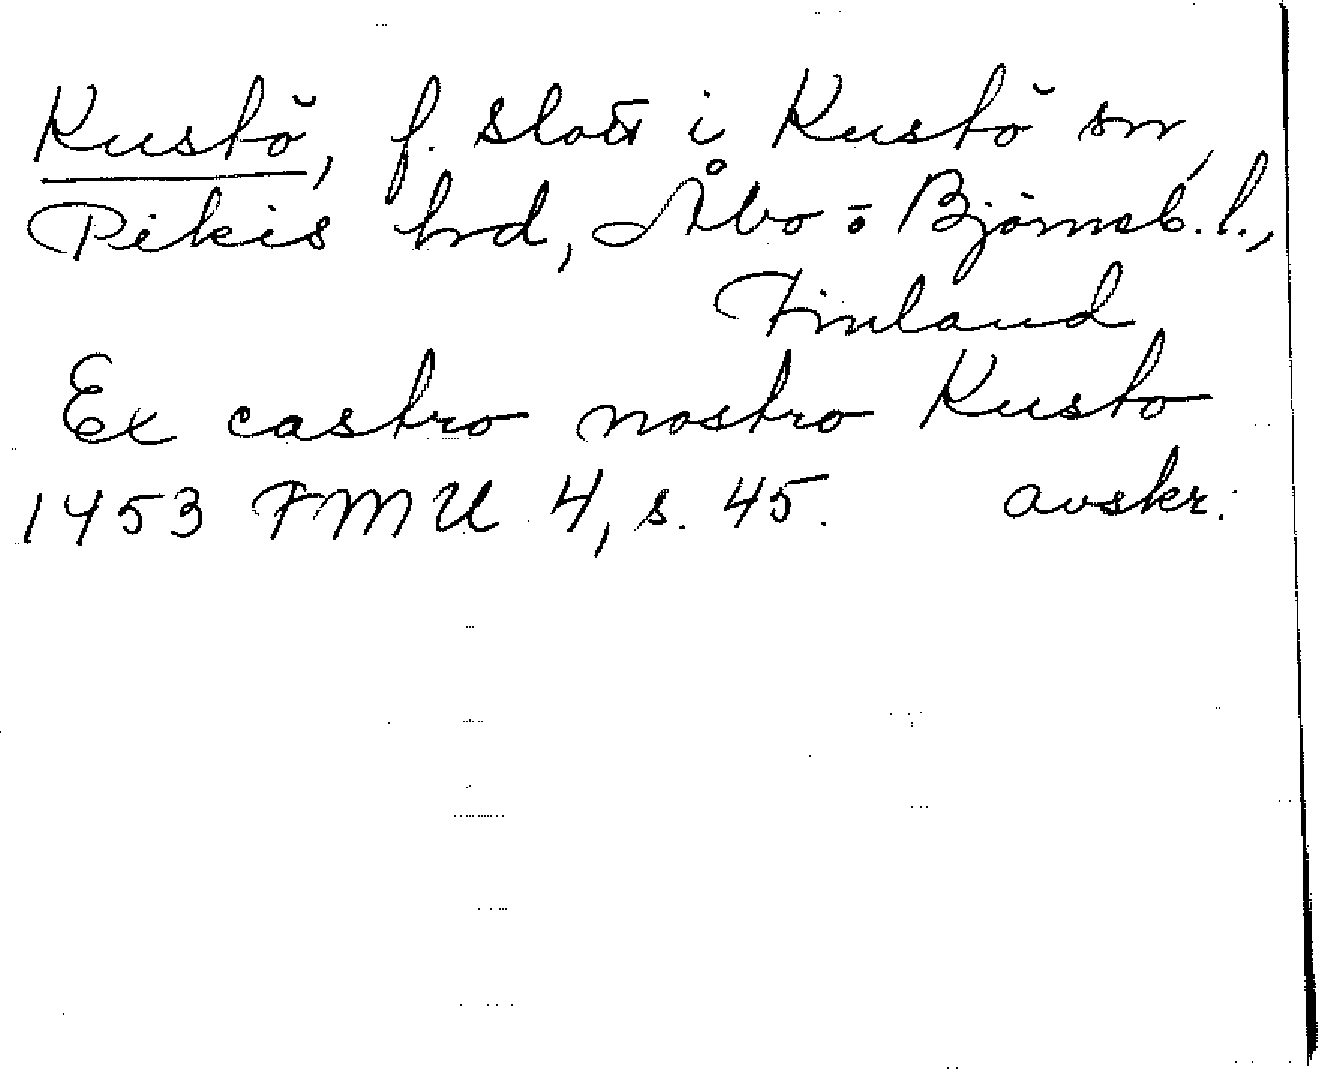 Kustö, f. slott i Kustö sn,
Pikis hrd, Åbo o Björneb. l.,
Finland
Ex castro nostro Kusto
1453 FMU 4, s. 45. avskr.